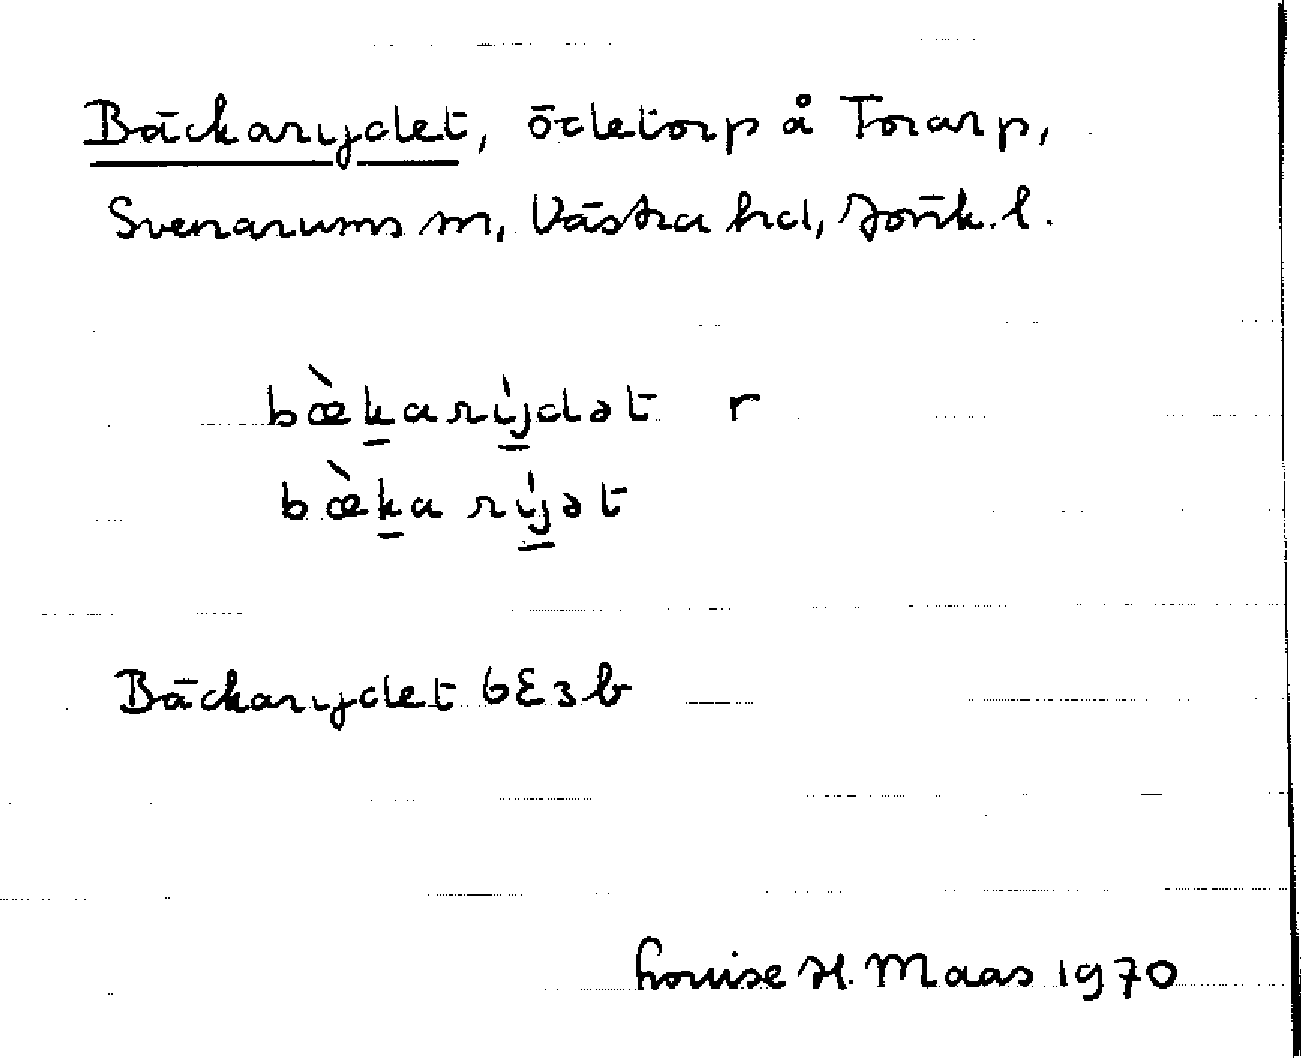 Bäckarydet, ödetorp å Torarp,
Svenarums sn, Västra hd, Jönk. l.
bæ̀ḵarẏ́dət r
bæ̀ḵa rẏ́ət
Bäckarydet 6E3b
Louise H. Maas 1970